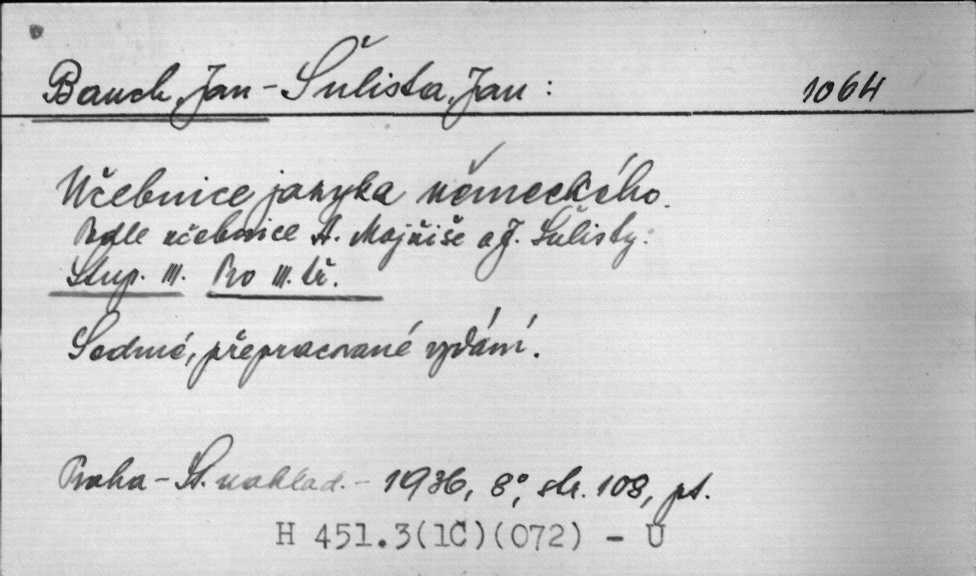 Bauch, Jan - Šulista, Jan : 1064
Učebnice jazyka německého.
Podle učebnice A. Mojžíše a J. Šulisty.
Stup. III. Pro III. tř.
Sedmé, přepracované vydání.
Praha - St. naklad. - 1936, 8°, str. 108, pt.
H 451.3(1C)(072) - U